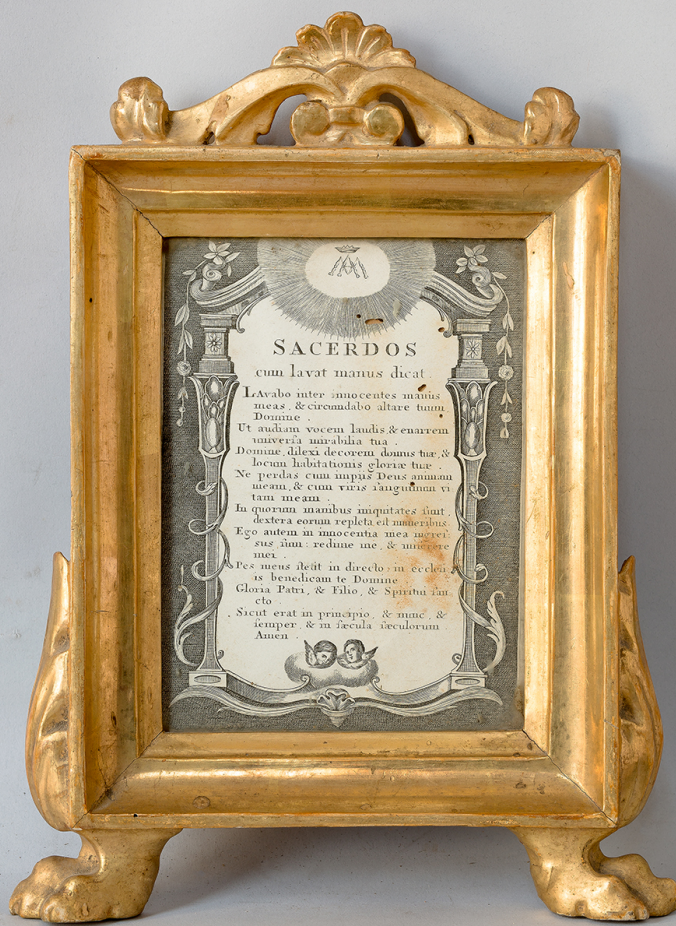 SACERDOS
cum lavat manus dicat.
LAvabo inter innocentes manus
meas, & circumdabo altare tuum
Domine.
Ut audiam vocem laudis, & enarrem
univerſa mirabilia tua.
Domine, dilexi decorem domus tuæ, &
locum habitationis gloriæ tuæ.
Ne perdas cum impiis Deus animam
meam, & cum viris ſanguinum vi
tam meam.
In quorum manibus iniquitates ſunt,
dextera eorum repleta eſt muneribus.
Ego autem in innocentia mea ingreſ
sus ſum: redime me, & miſerere
mei.
Pes meus ſtetit in directo: in eccleſi
is benedicam te Domine
Gloria Patri, & Filio, & Spiritui ſan
cto.
Sicut erat in principio, & nunc, &
ſemper, & in ſæcula ſæculorum
Amen.